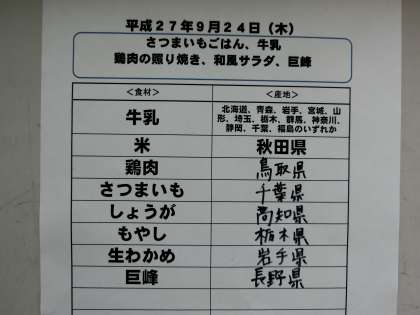 平成27年9月24日（木）
さつまいもごはん、牛乳
鶏肉の照り焼き、和風サラダ、巨峰
＜食材＞ ＜産地＞
牛乳 北海道、青森、岩手、宮城、山
形、埼玉、栃木、群馬、神奈川、
静岡、千葉、福島のいずれか
米 秋田県
鶏肉 鳥取県
さつまいも 千葉県
しょうが 高知県
もやし 栃木県
生わかめ 岩手県
巨峰 長野県